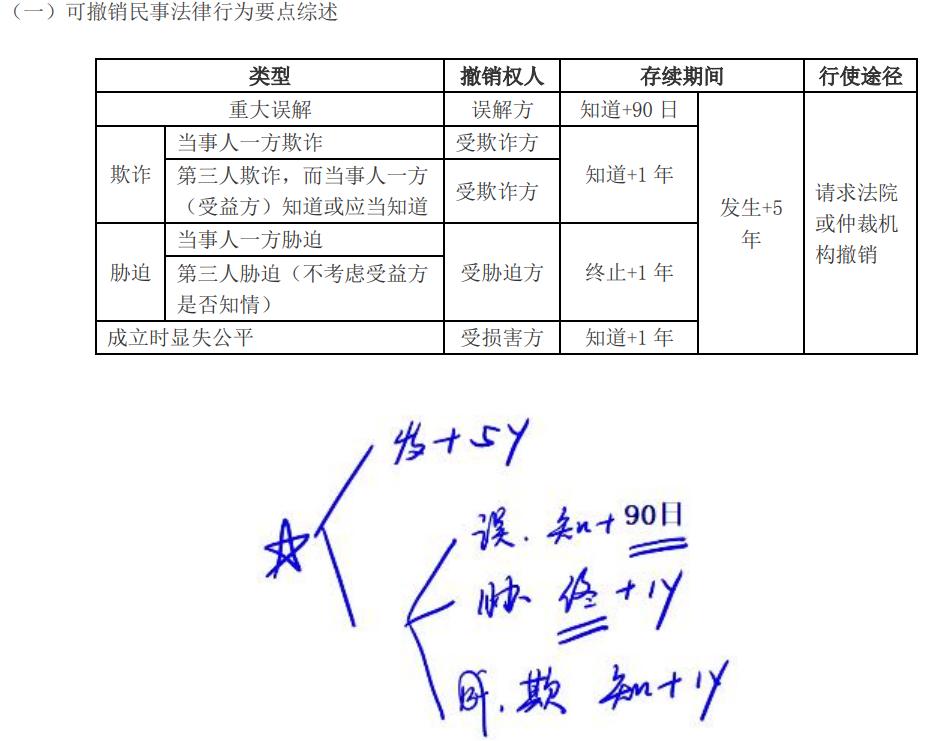 （一）可撤销民事法律行为要点综述
类型 撤销权人 存续期间 行使途径
重大误解 误解方 知道+90 日 发生+5 年 请求法院或仲裁机构撤销
欺诈 当事人一方欺诈 受欺诈方 知道+1 年
第三人欺诈，而当事人一方
（受益方）知道或应当知道 受欺诈方
胁迫 当事人一方胁迫 受胁迫方 终止+1 年
第三人胁迫（不考虑受益方
是否知情）
成立时显失公平 受损害方 知道+1 年
发+5Y
误. 知+90日
胁 终+1Y
欺 知+1Y